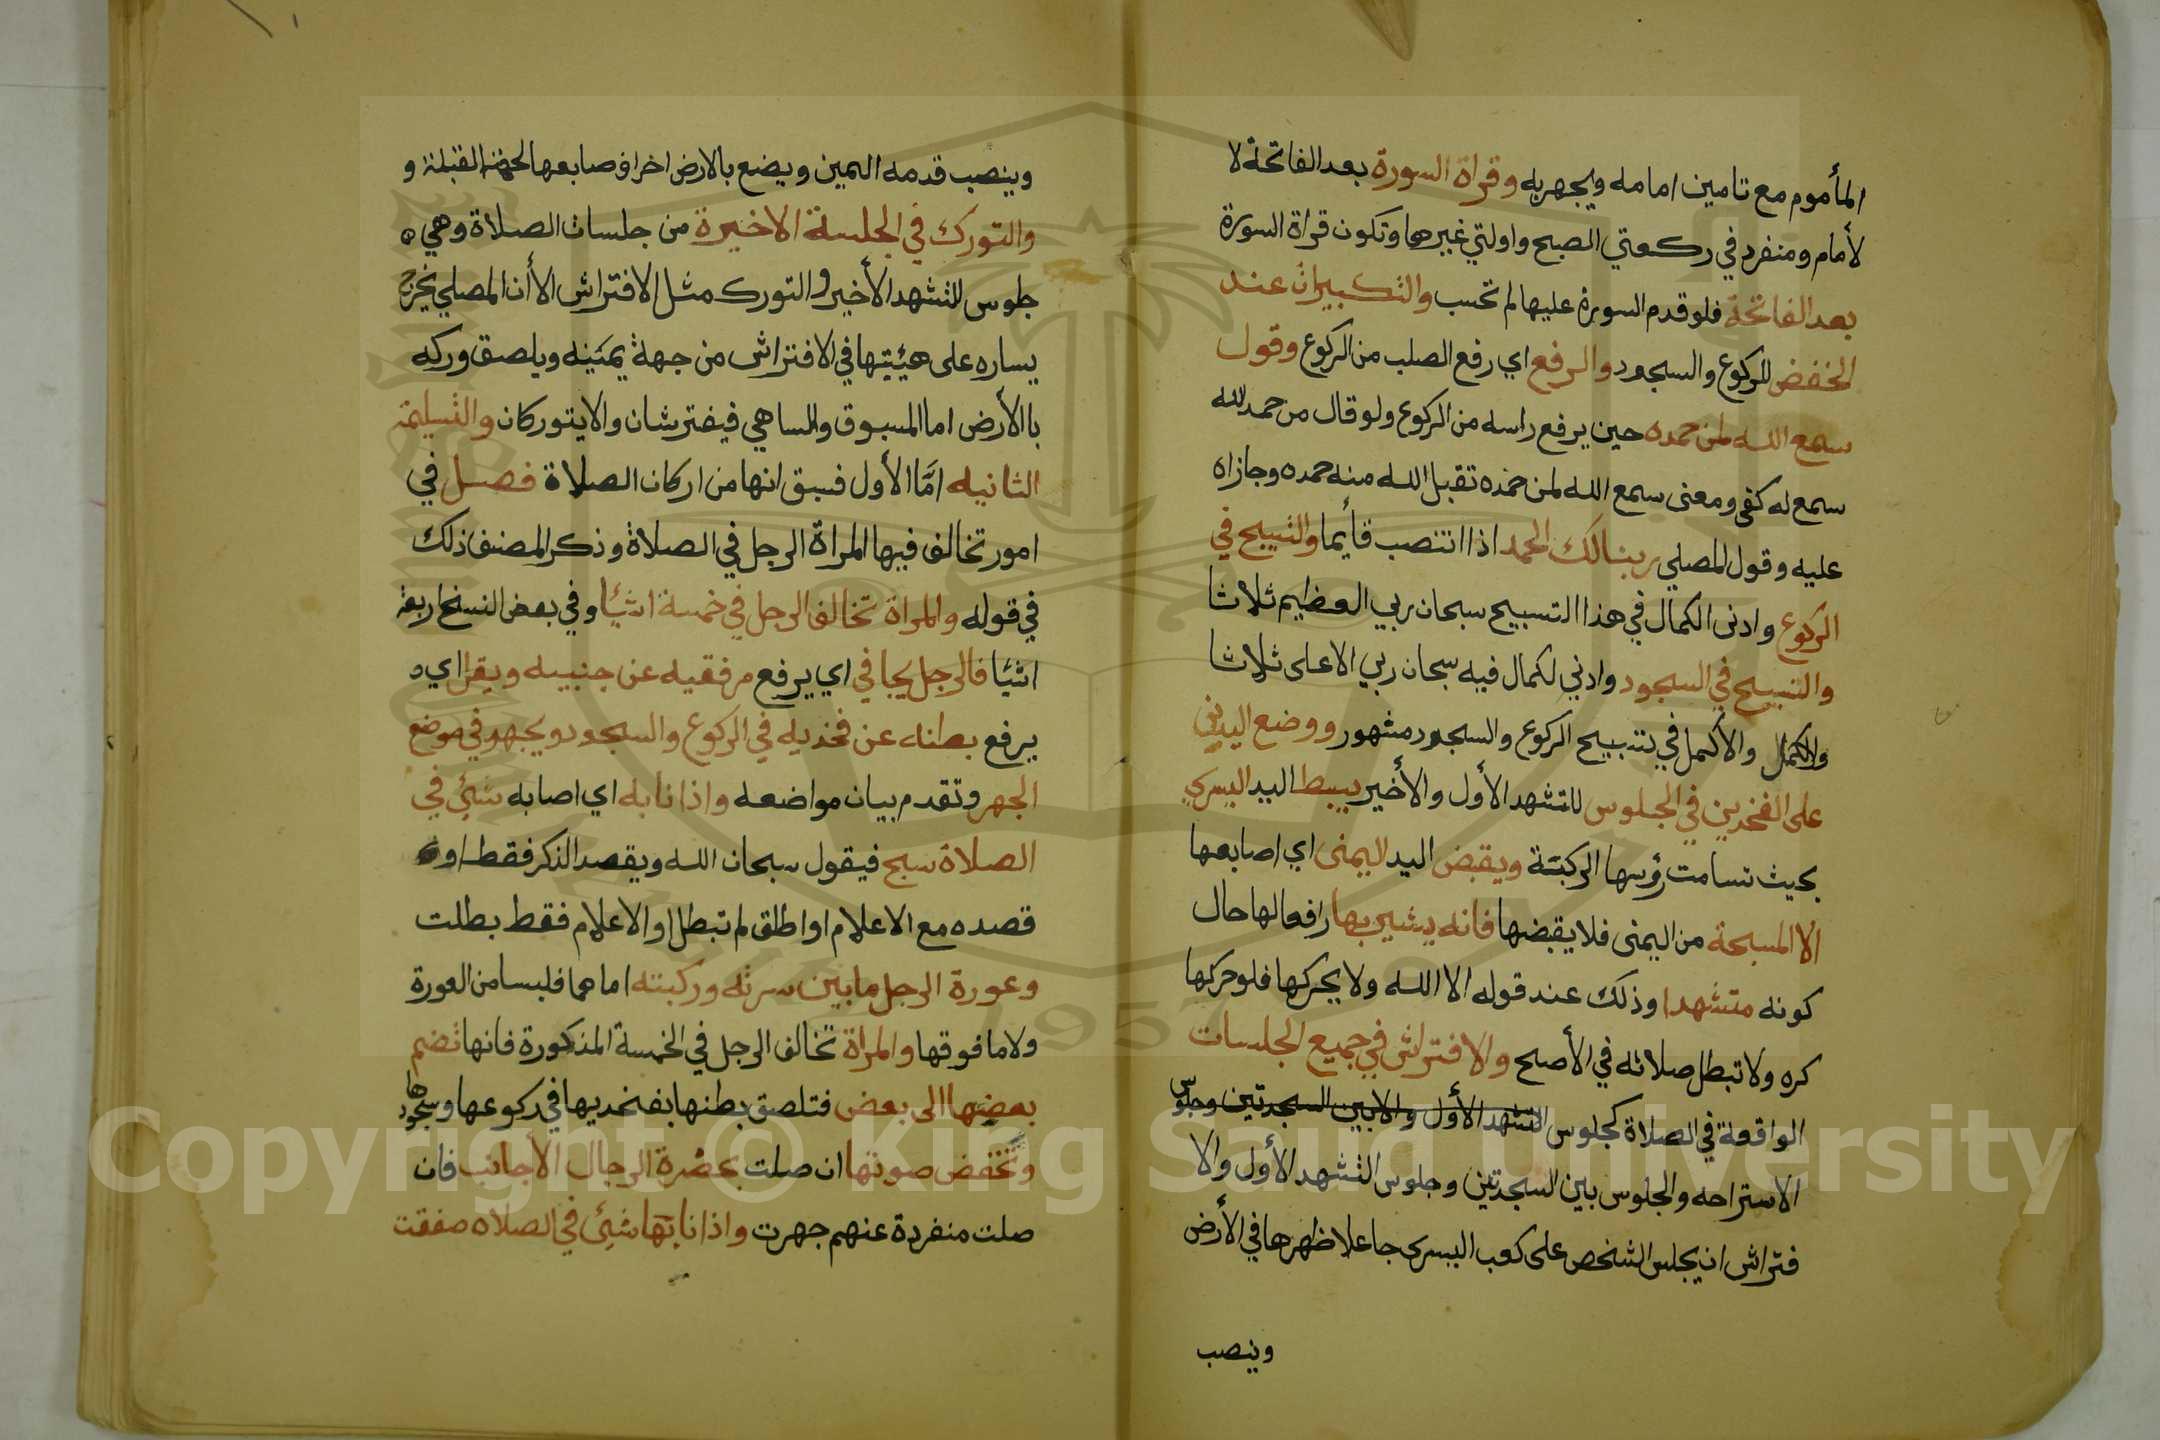 المأموم مع تامين امامه ويجهر به وقراة السورة بعد الفاتحة لا
لأمام ومنفرد في ركعتي الصبح واولتي غيرهما وتكون قراة السورة
بعد الفاتحة فلو قدم السورة عليها لم تحسب والتكبيرات عند
الخفض للركوع والسجود والرفع اي رفع الصلب من الركوع وقول
سمع الله لمن حمده حين يرفع راسه من الركوع ولو قال من حمد لله
سمع له كفى ومعنى سمع الله لمن حمده تقبل الله منه حمده وجازاه
عليه وقول المصلي ربنا لك الحمد اذا انتصب قأيما والتسبيح في
الركوع وادنى الكمال في هذا التسبيح سبحان ربي العظيم ثلاثا
والتسبيح في السجود وادني لكمال فيه سبحان ربي الاعلى ثلاثا
والأكمل في تسبيح الركوع والسجود مشهور ووضع اليدين
على الفخدين في الجلوس للتشهد الأول والأخير يبسط اليد اليسرى
بحيث تسامت رؤسها الركبتة ويقبض اليد اليمنى اي اصابعها
الا المسبحة من اليمنى فلا يقبضها فانه يشير بها رافعا لها حال
كونه متشهدا وذلك عند قوله الا الله ولا يحركها فلو حركها
كره ولا تبطل صلاته في الأصح والافتراش في جميع الجلسات
الواقعة في الصلاة كجلوس التشهد الأول والابين السجدتين وجلوس
الاستراحه والجلوس بين السجدتين وجلوس التشهد الأول والا
فتراش ان يجلس الشخص على كعب اليسرى جاعلا ظهرها في الأرض
وينصب
وينصب قدمه اليمين ويضع بالارض اخراف صابعها لجهة القبلة و
والتورك في الجلسة الاخيرة من جلسات الصلاة وهي
جلوس للتشهد الأخير والتورك مثل الافتراش الا أن المصلي يخرج
يساره على هيئيتها في الافتراش من جهة يمينه ويلصق وركه
با الأرض اما المسبوق والساهي فيفترشان والايتوركان والتسليمة
الثانيه امَّا الأول فسبق انها من اركان الصلاة فصل في
امور تخالف فيها المراة الرجل في الصلاة وذكر المصنف ذلك
في قوله والمراة تخالف الرجل في خمسة اشيًا وفي بعض النسخ اربعة
اشيًا فالرجل يجافي اي يرفع مرفقيه عن جنبيه ويقل اي
يرفع بطنه عن فخديه في الركوع والسجود ويجهر في موضع
الجهر وتقدم بيان مواضعه واذا نابه اي اصابه شيئ في
الصلاة سبح فيقول سبحان الله ويقصد الذكر فقط او
قصده مع الاعلام او اطلق لم تبطل او الاعلام فقط بطلت
وعورة الرجل ما بين سرته وركبته اما هما فليسا من العورة
ولا ما فوقها والمراة تخالف الرجل في الخمسة المذكورة فانها تضم
بعضها الى بعض فتلصق بطنها بفخديها في ركوعها وسجودها
وتخفض صوتها ان صلت بحضرة الرجال الأجانب فان
صلت منفردة عنهم جهرت واذا نابها شيئ في الصلاه صفقت
Copyright © King Saud University
1957